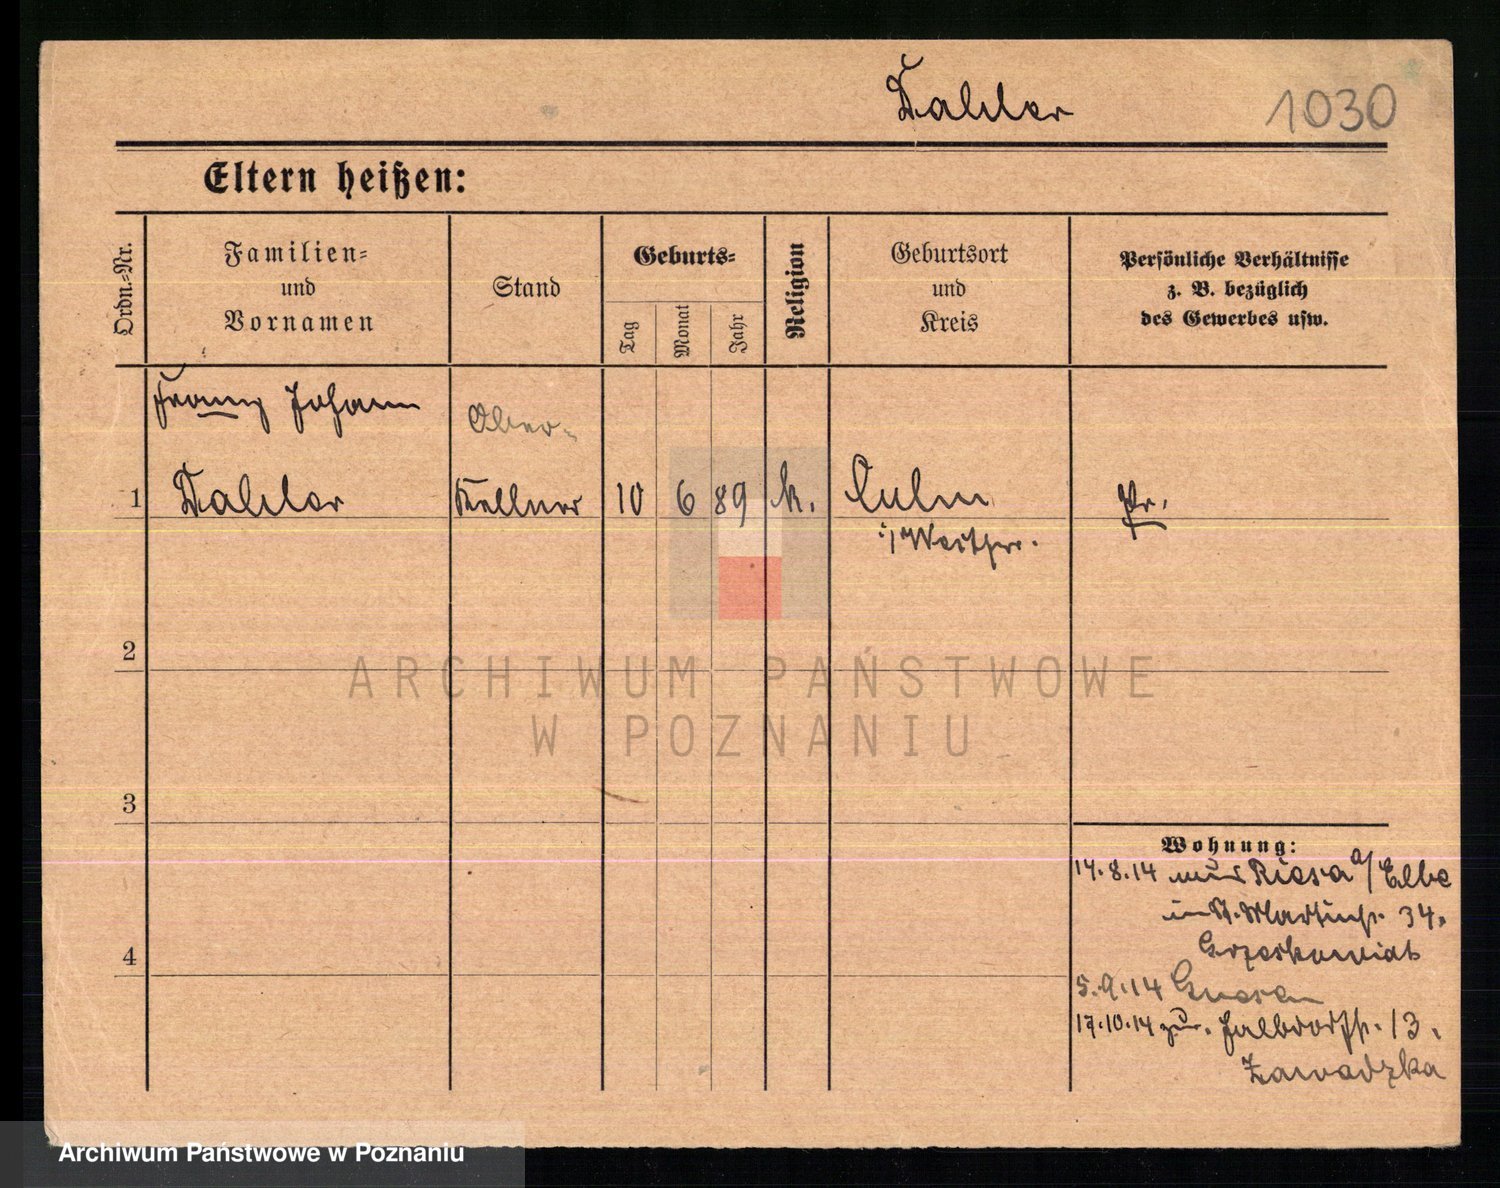 1030
Eltern heißen:
Ordn.=Nr.
Familien=
und
Vornamen
Stand
Geburts=
Tag
Monat
Jahr
Religion
Geburtsort
und
Kreis
Persönliche Verhältnisse
z. B. bezüglich
des Gewerbes usw.
Franz Johann
Ober-
1 Kellner 10 6 89 k. Culm Pr.
i/Westpr.
2
ARCHIWUM PAŃSTWOWE
W POZNANIU
3
Wohnung:
14.8.14 Riesa a/Elbe
in St. Martinstr. 34.
Grzeskowiak
4
5.9.14 Gnesen
17.10.14 zur. 13.
Zawadzka
Archiwum Państwowe w Poznaniu